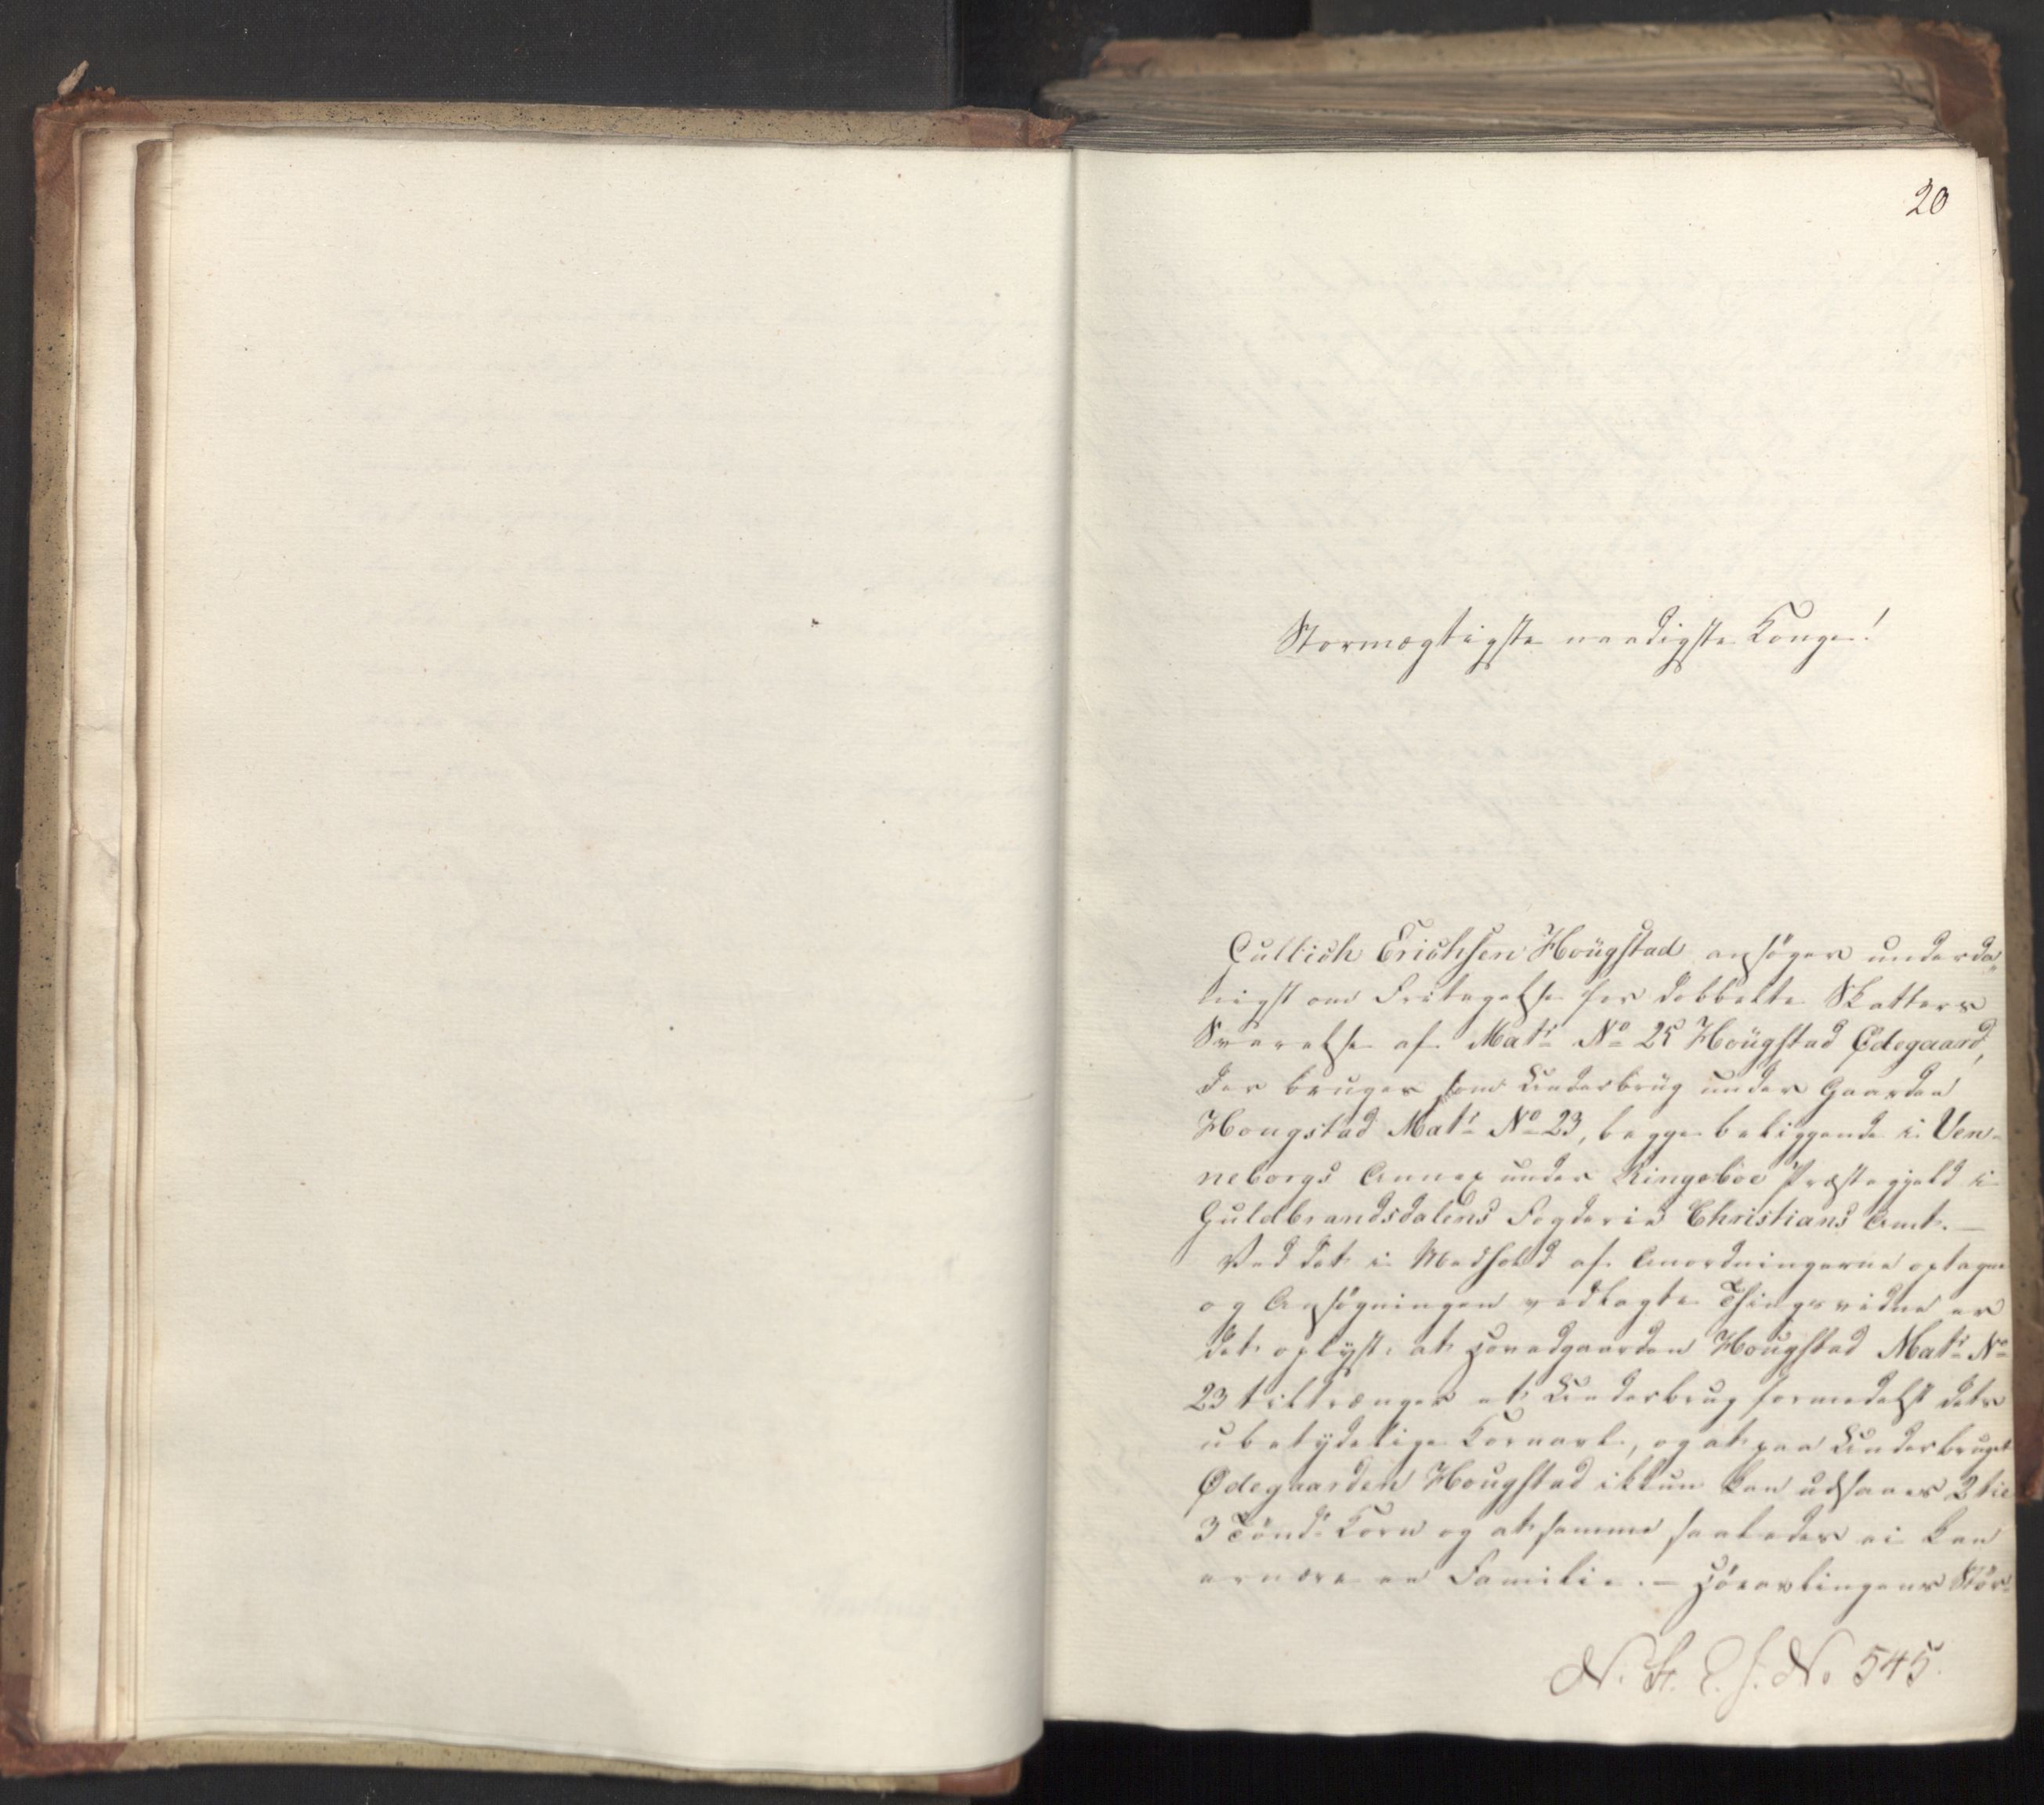 20
Stormægtigste naadigste Konge!
Cullich Erichsen Hougstad ansøger underda„
nigst om Fritagelse for dobbelte Skatters
Svarelse af Matr No 25 Hougstad Ødegaard,
der bruges som Underbrug under Gaarden
Hougstad Matr No 23, begge beliggende i Ven-
neborgs Annex under Ringeboe Præstegjeld i
Guldbrandsdalens Fogderie Christians Amt. —
Ved det i Medhold af Anordningerne optagne
og Ansøgningen vedlagte Thingsvidne er
det oplyst: at Hovedgaarden Hougstad Matr No
23 tiltrænger et Underbrug formedelst dets
ubetydelige Kornavl, og at paa Underbruget
Ødegaarden Hougstad ikkun kan udsaaes 2 til
3 Tønd: Korn og at samme saaledes ei kan
ernære en Familie. — Høeavlingens Stør-
N. St. R. J. No 545.